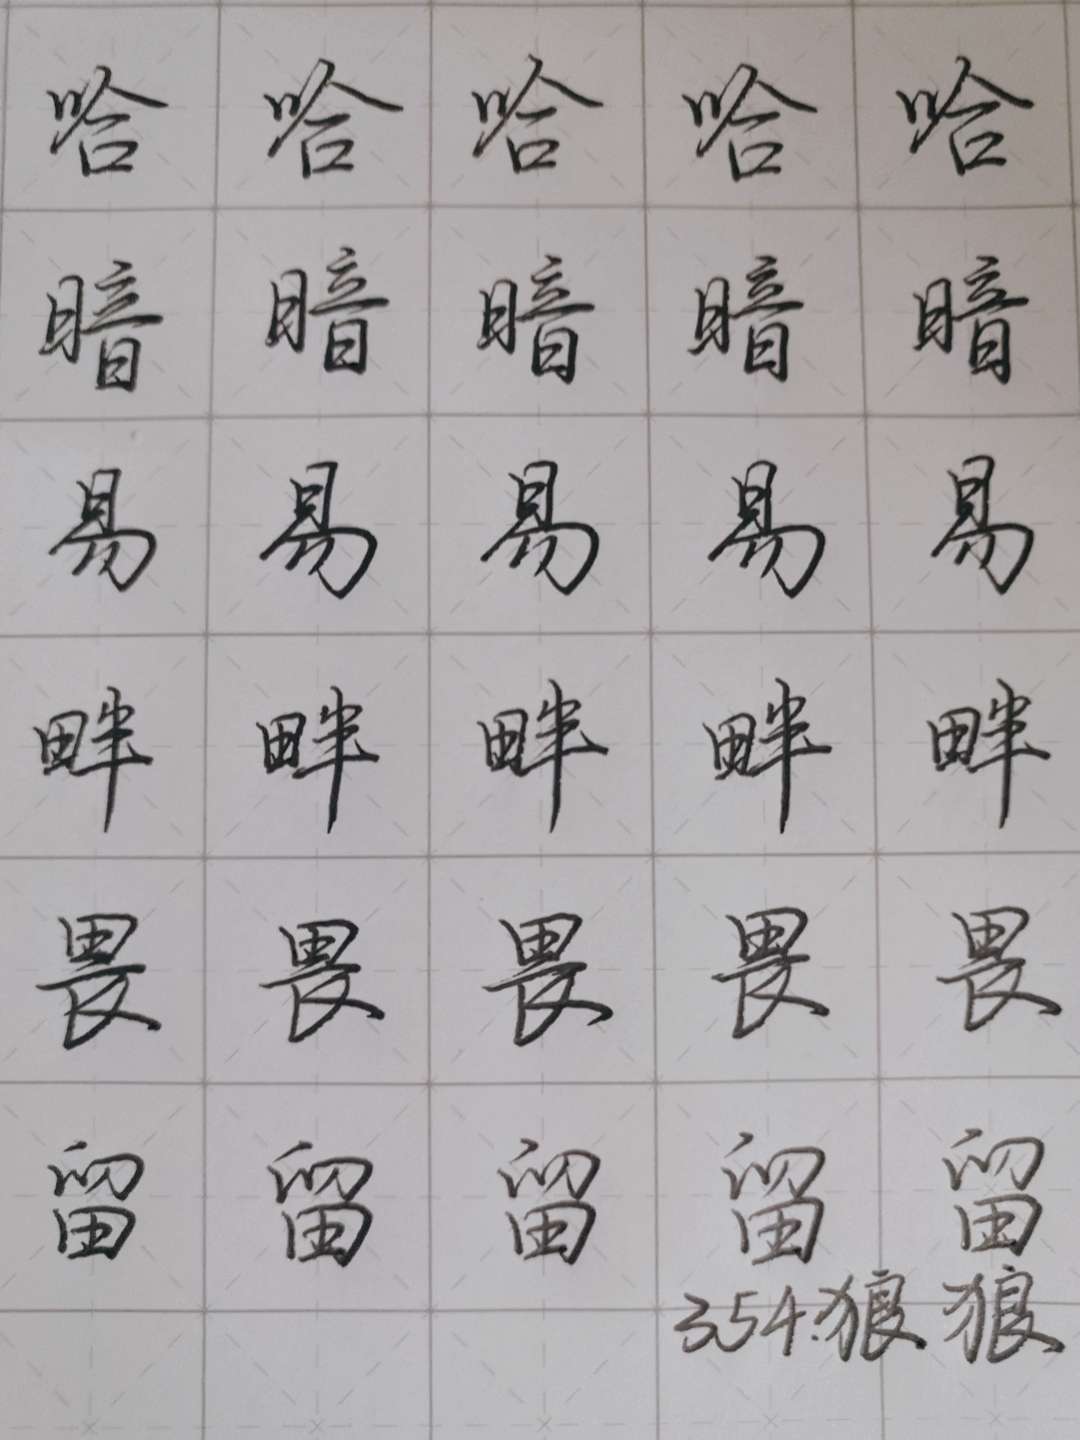 哈 哈 哈 哈 哈
暗 暗 暗 暗 暗
易 易 易 易 易
畔 畔 畔 畔 畔
畏 畏 畏 畏 畏
留 留 留 留 留
354.狼 狼